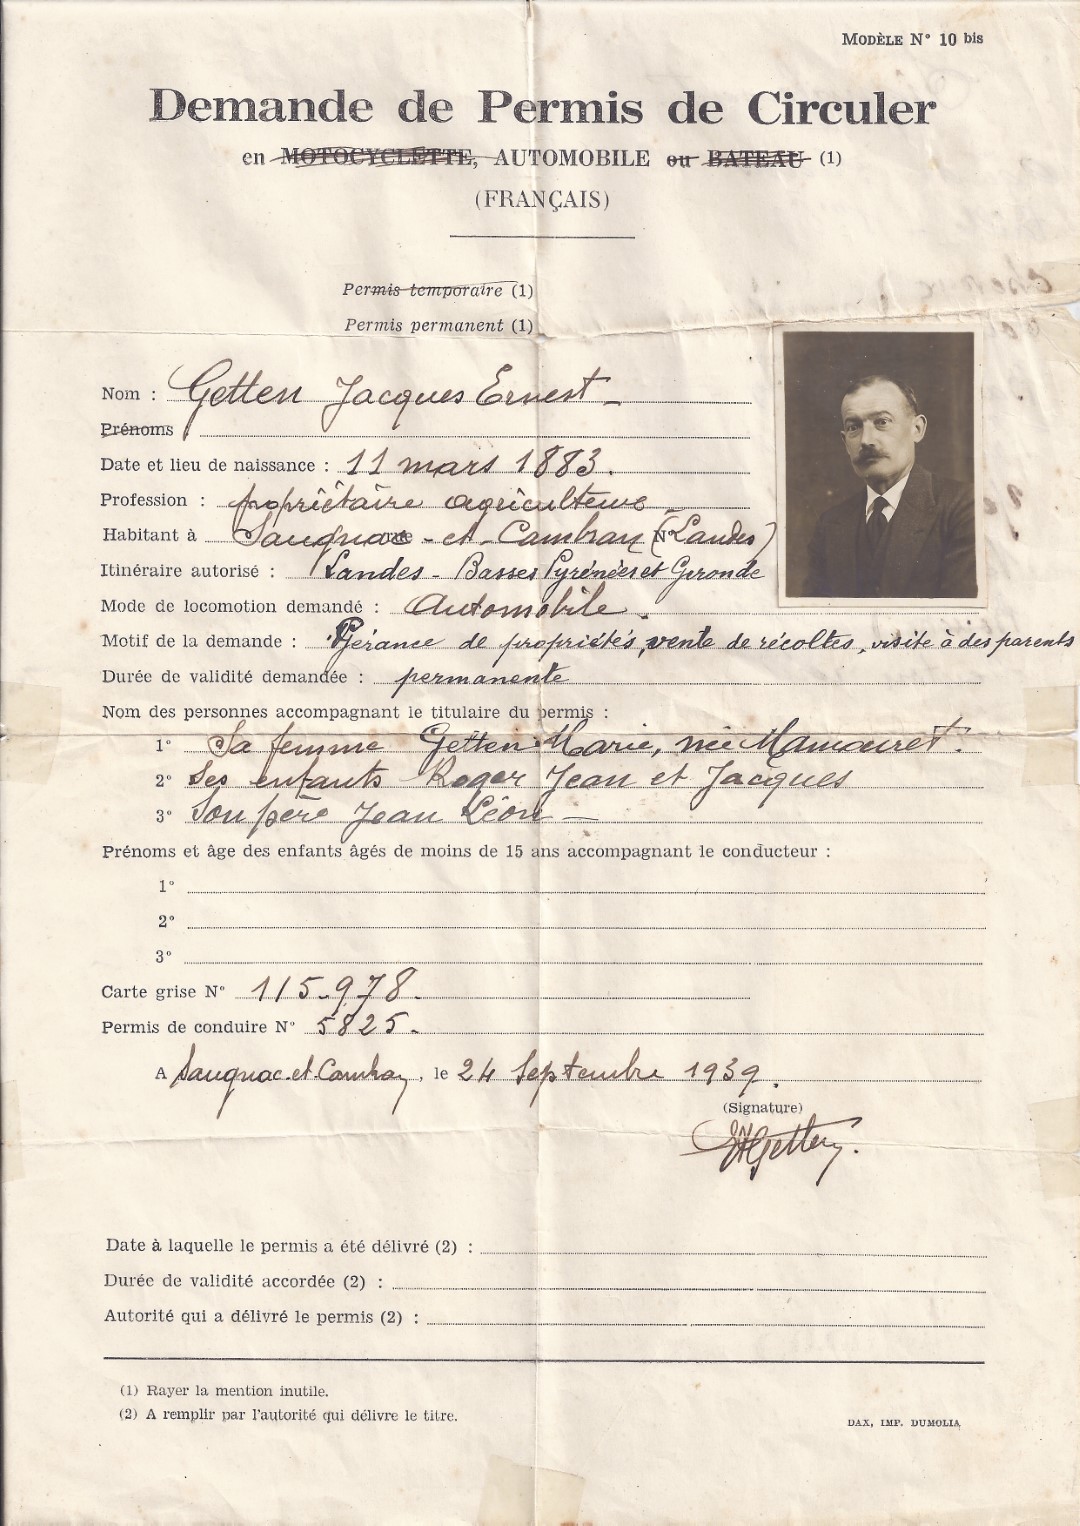 MODÈLE N° 10 bis
Demande de Permis de Circuler
en MOTOCYCLETTE, AUTOMOBILE ou BATEAU (1)
(FRANÇAIS)
Permis temporaire (1)
Permis permanent (1)
Nom : Getten Jacques Ernest
Prénoms :
Date et lieu de naissance : 11 mars 1883.
Profession : propriétaire agriculteur
Habitant à Saugnac-et-Cambran (Landes)
Itinéraire autorisé : Landes - Basses Pyrénées et Gironde
Mode de locomotion demandé : Automobile.
Motif de la demande : Gérance de propriétés, vente de récoltes, visite à des parents
Durée de validité demandée : permanente
Nom des personnes accompagnant le titulaire du permis :
1° Sa femme Getten Marie, née Mamouret.
2° Ses enfants Roger Jean et Jacques
3° Son père Jean Léon —
Prénoms et âge des enfants âgés de moins de 15 ans accompagnant le conducteur :
1°
2°
3°
Carte grise N° 115-978.
Permis de conduire N° 5825.
A Saugnac-et-Cambran, le 24 Septembre 1939.
(Signature)
Getten.
Date à laquelle le permis a été délivré (2) :
Durée de validité accordée (2) :
Autorité qui a délivré le permis (2) :
(1) Rayer la mention inutile.
(2) A remplir par l'autorité qui délivre le titre.
DAX, IMP. DUMOLIA